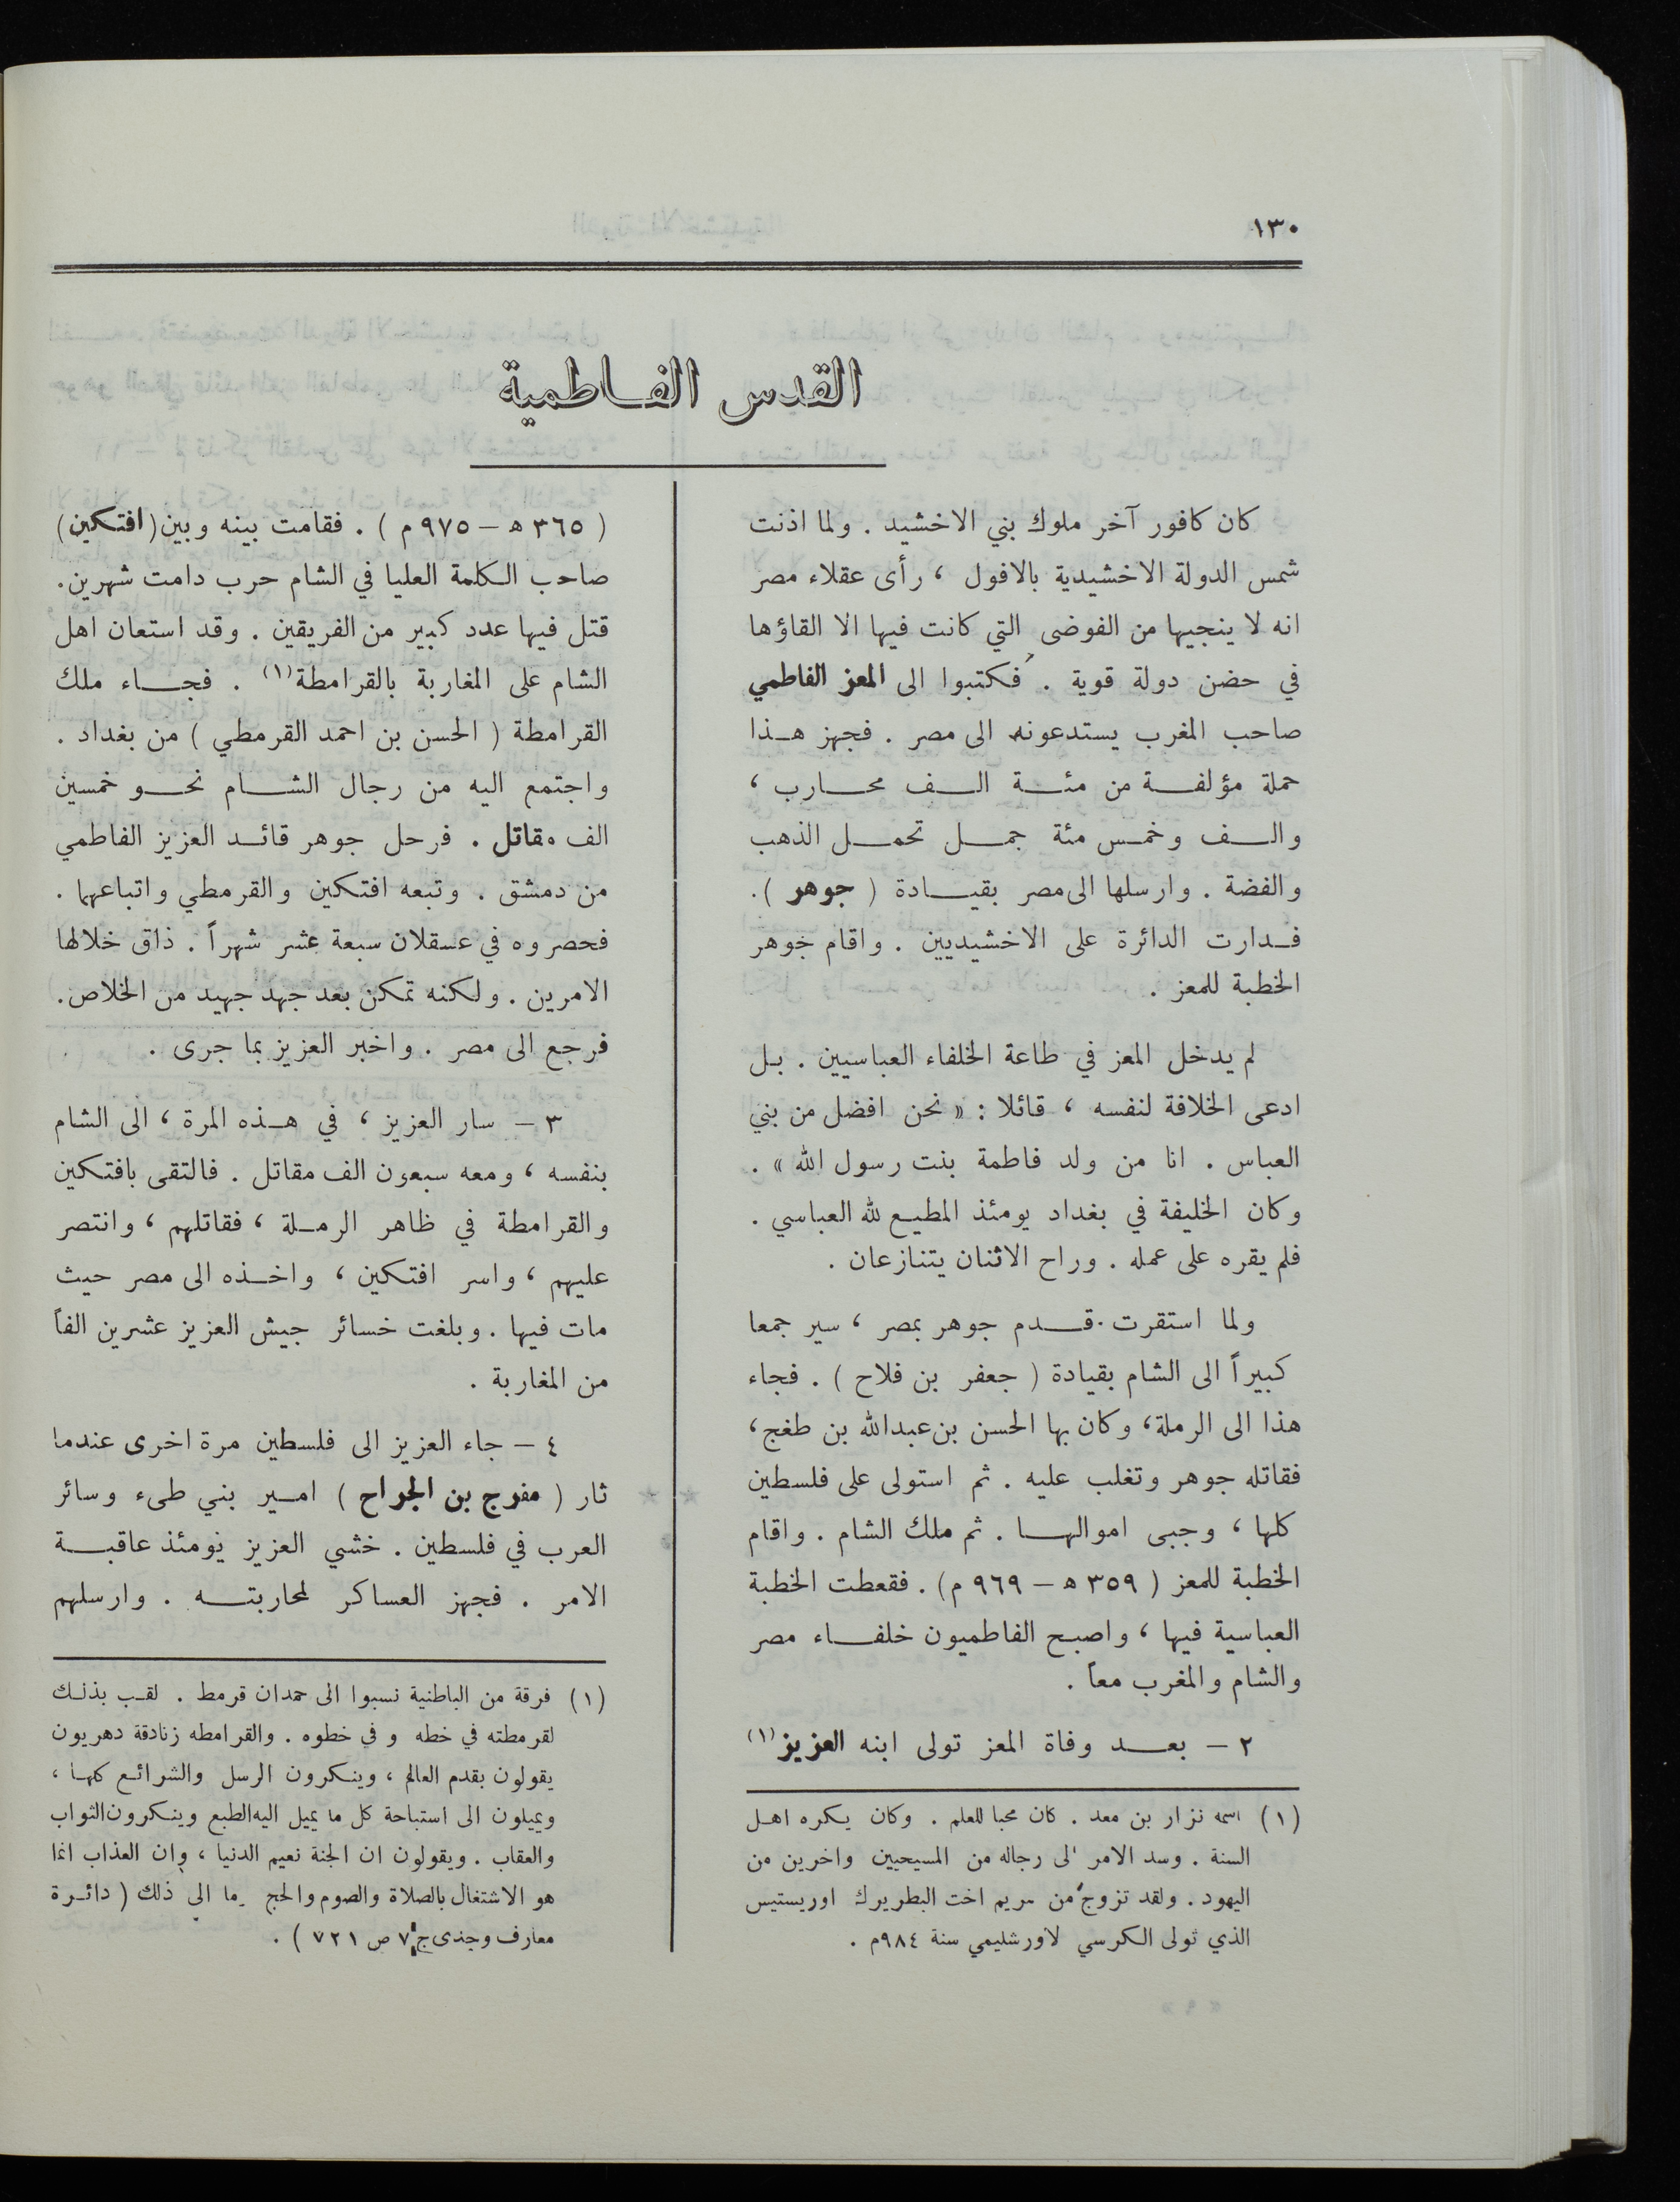 ١٣٠
القدس الفاطمية
كان كافور آخر ملوك بني الاخشيد . ولما اذنت
شمس الدولة الاخشيدية بالافول ، رأى عقلاء مصر
انه لا ينجيها من الفوضى التي كانت فيها الا القاؤها
في حضن دولة قوية . فكتبوا الى المعز الفاطمي
صاحب المغرب يستدعونه الى مصر . فجهز هذا
حملة مؤلفة من مئة الف محارب ،
والف وخمس مئة جمل تحمل الذهب
والفضة . وارسلها الى مصر بقيادة ( جوهر ) .
فدارت الدائرة على الاخشيديين . واقام جوهر
الخطبة للمعز .
لم يدخل المعز في طاعة الخلفاء العباسيين . بل
ادعى الخلافة لنفسه ، قائلا : « نحن افضل من بني
العباس . انا من ولد فاطمة بنت رسول الله » .
وكان الخليفة في بغداد يومئذ المطيع لله العباسي .
فلم يقره على عمله . وراح الاثنان يتنازعان .
ولما استقرت قدم جوهر بمصر ، سير جمعا
كبيراً الى الشام بقيادة ( جعفر بن فلاح ) . فجاء
هذا الى الرملة ، وكان بها الحسن بن عبدالله بن طغج ،
فقاتله جوهر وتغلب عليه . ثم استولى على فلسطين
كلها ، وجبى اموالها . ثم ملك الشام . واقام
الخطبة للمعز ( ٣٥٩ ه – ٩٦٩ م ) . فقعطت الخطبة
العباسية فيها ، واصبح الفاطميون خلفاء مصر
والشام والمغرب معاً .
٢ – بعد وفاة المعز تولى ابنه العزيز (١)
(١) اسمه نزار بن معد . كان محبا للعلم . وكان يكره اهل
السنة . وسد الامر الى رجاله من المسيحيين واخرين من
اليهود . ولقد تزوج من مريم اخت البطريرك اوريستيس
الذي تولى الكرسي لاورشليمي سنة ٩٨٤م .
( ٣٦٥ ه – ٩٧٥ م ) . فقامت بينه وبين (افتكين)
صاحب الكلمة العليا في الشام حرب دامت شهرين .
قتل فيها عدد كبير من الفريقين . وقد استعان اهل
الشام على المغاربة بالقرامطة (١) . فجاء ملك
القرامطة ( الحسن بن احمد القرمطي ) من بغداد .
واجتمع اليه من رجال الشام نحو خمسين
الف مقاتل . فرحل جوهر قائد العزيز الفاطمي
من دمشق . وتبعه افتكين والقرمطي واتباعهما .
فحصروه في عسقلان سبعة عشر شهراً . ذاق خلالها
الامرين . ولكنه تمكن بعد جهد جهيد من الخلاص .
فرجع الى مصر . واخبر العزيز بما جرى .
٣ – سار العزيز ، في هذه المرة ، الى الشام
بنفسه ، ومعه سبعون الف مقاتل . فالتقى بافتكين
والقرامطة في ظاهر الرملة ، فقاتلهم ، وانتصر
عليهم ، واسر افتكين ، واخذه الى مصر حيث
مات فيها . وبلغت خسائر جيش العزيز عشرين الفاً
من المغاربة .
٤ – جاء العزيز الى فلسطين مرة اخرى عندما
ثار ( مفرج بن الجراح ) امير بني طىء وسائر
العرب في فلسطين . خشي العزيز يومئذ عاقبة
الامر . فجهز العساكر لمحاربته . وارسلهم
(١) فرقة من الباطنية نسبوا الى حمدان قرمط . لقب بذلك
لقرمطته في خطه و في خطوه . والقرامطه زنادقة دهريون
يقولون بقدم العالم ، وينكرون الرسل والشرائع كلها ،
ويميلون الى استباحة كل ما يميل اليه الطبع وينكرون الثواب
والعقاب . ويقولون ان الجنة نعيم الدنيا ، وان العذاب انما
هو الاشتغال بالصلاة والصوم والحج وما الى ذلك ( دائرة
معارف وجدى ج ٧ ص ٧٢١ ) .